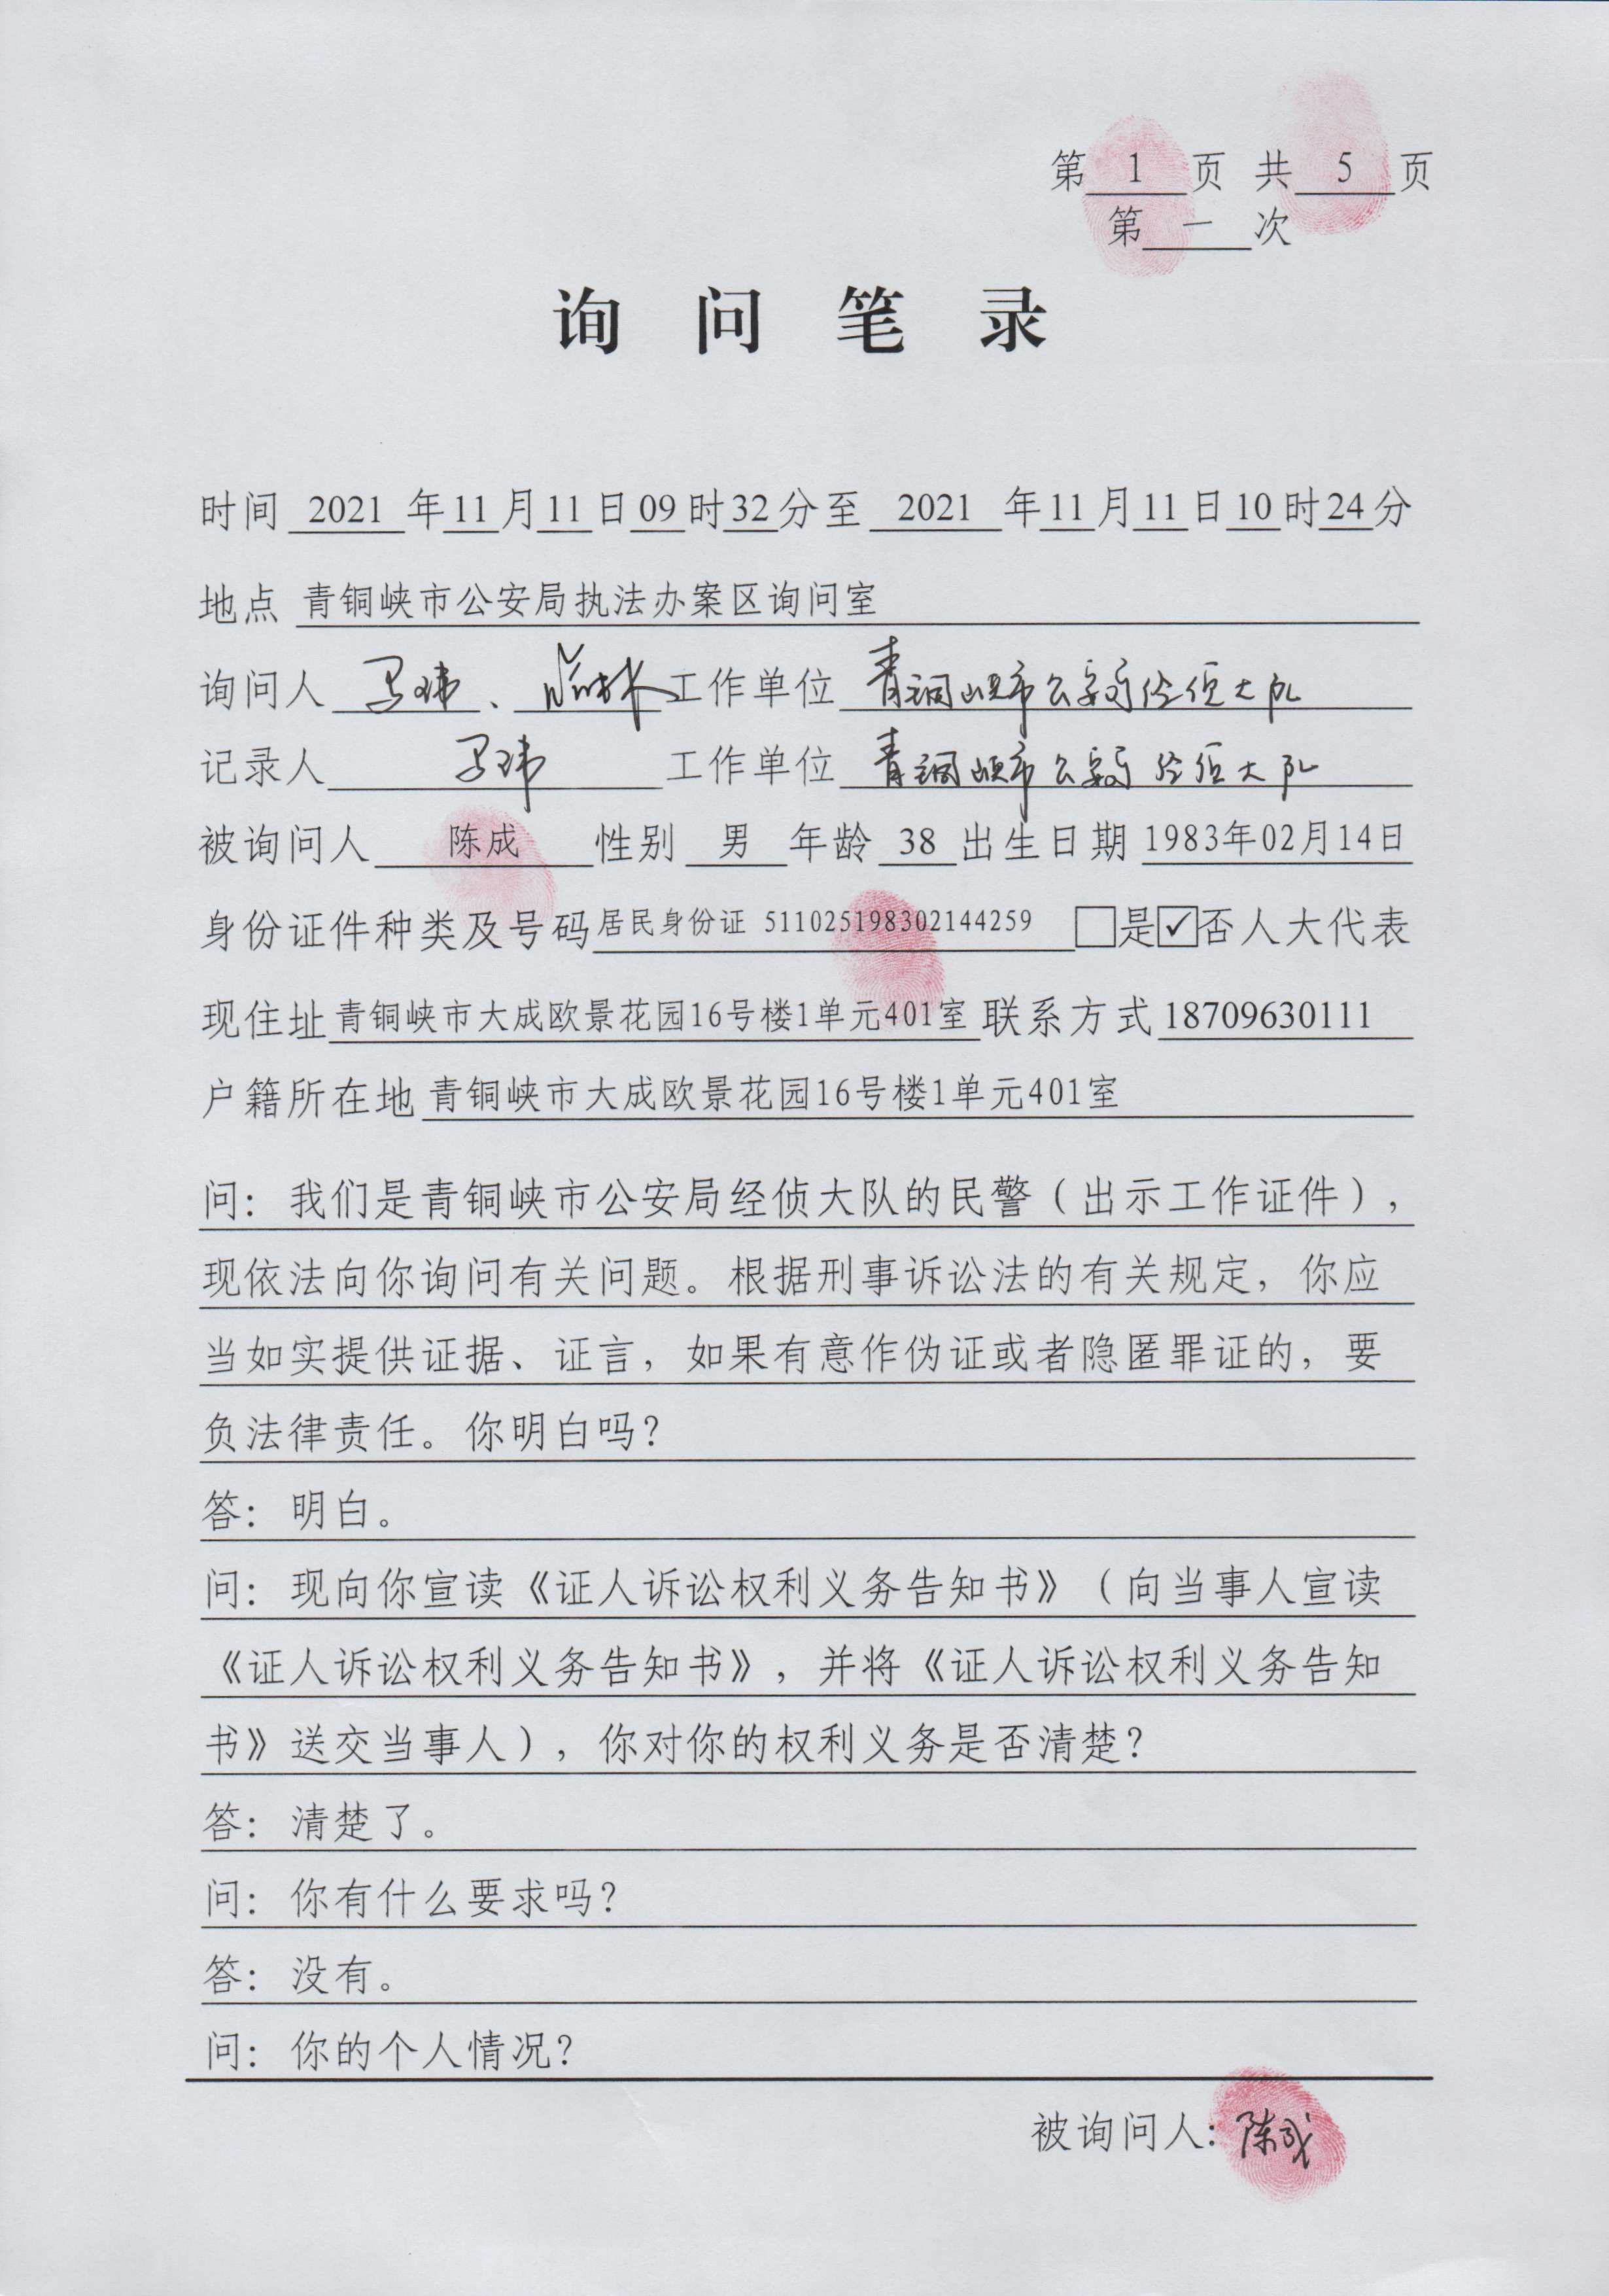 第 1 页 共 5 页
第 一 次
询问笔录
时间 2021 年 11 月 11 日 09 时 32 分至 2021 年 11 月 11 日 10 时 24 分
地点 青铜峡市公安局执法办案区询问室
询问人 马玮、 工作单位 青铜峡市公安局经侦大队
记录人 马玮 工作单位 青铜峡市公安局经侦大队
被询问人 陈成 性别 男 年龄 38 出生日期 1983年02月14日
身份证件种类及号码 居民身份证 511025198302144259 □是☑否人大代表
现住址 青铜峡市大成欧景花园16号楼1单元401室 联系方式 18709630111
户籍所在地 青铜峡市大成欧景花园16号楼1单元401室
问：我们是青铜峡市公安局经侦大队的民警（出示工作证件），
现依法向你询问有关问题。根据刑事诉讼法的有关规定，你应
当如实提供证据、证言，如果有意作伪证或者隐匿罪证的，要
负法律责任。你明白吗？
答：明白。
问：现向你宣读《证人诉讼权利义务告知书》（向当事人宣读
《证人诉讼权利义务告知书》，并将《证人诉讼权利义务告知
书》送交当事人），你对你的权利义务是否清楚？
答：清楚了。
问：你有什么要求吗？
答：没有。
问：你的个人情况？
被询问人：陈成